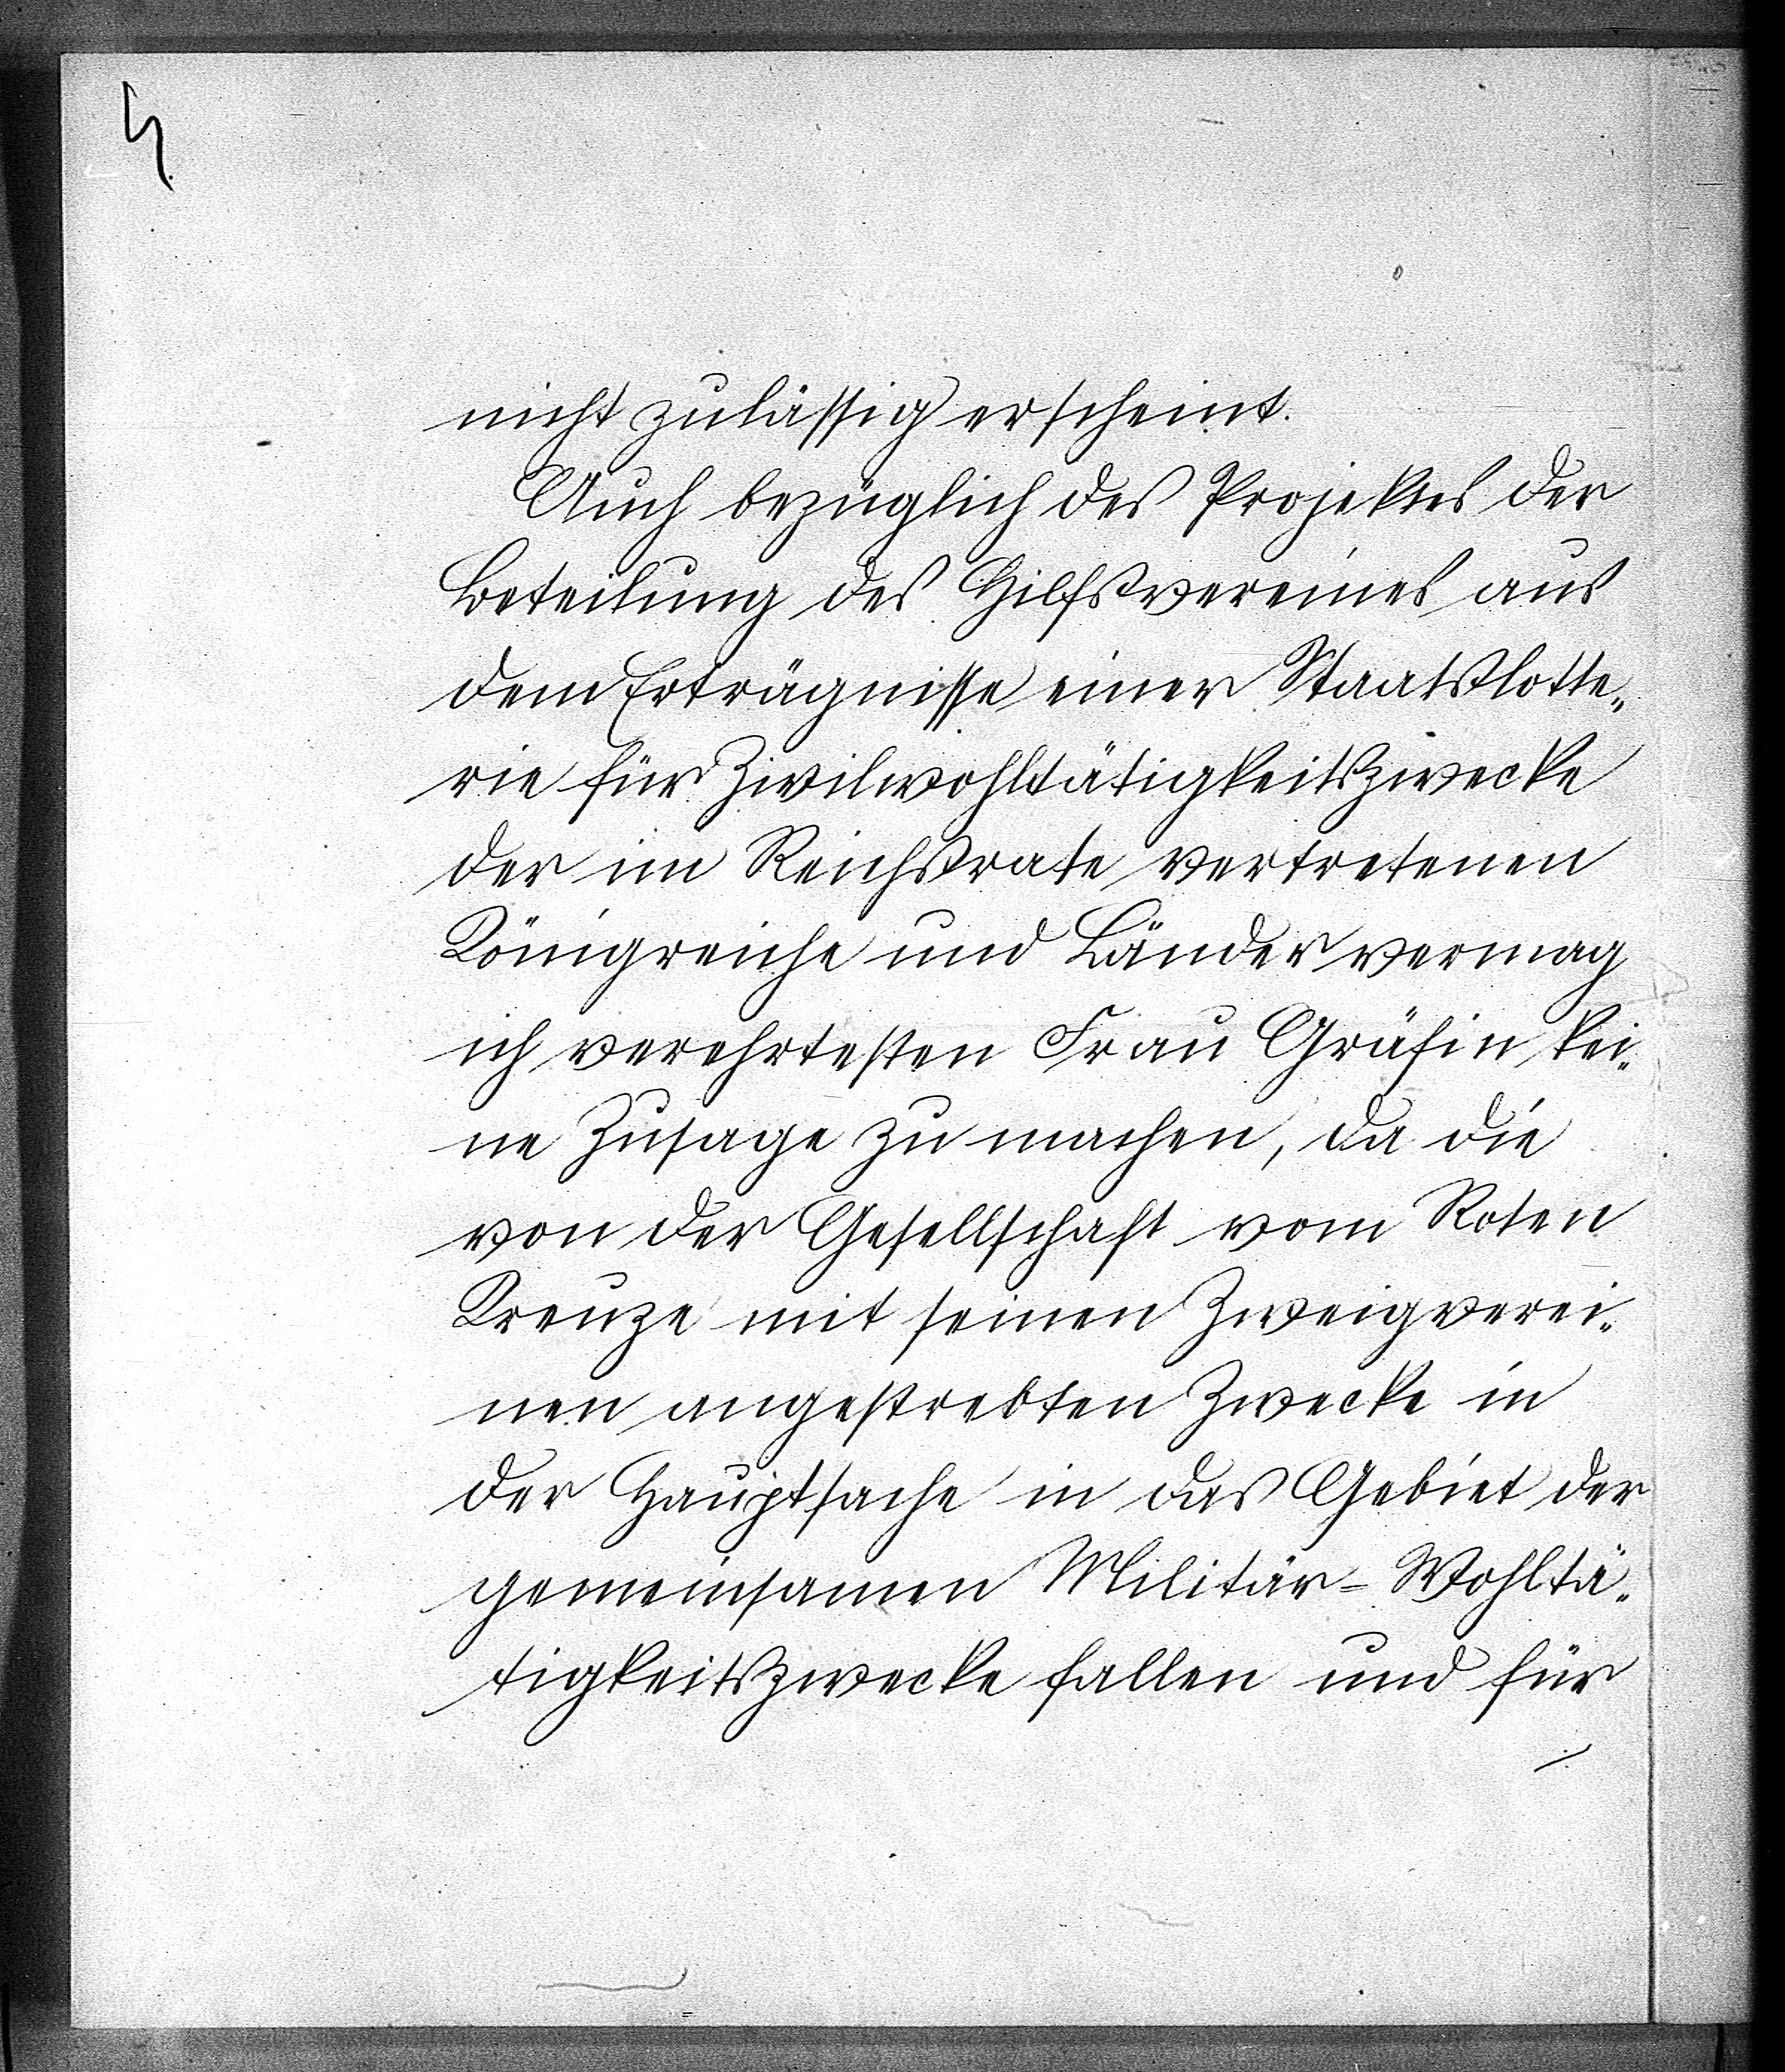 4
nicht zulässig erscheint.
Auch bezüglich des Projektes der
Beteilung des Hilfsvereines aus
dem Erträgnisse einer Staatslotte„
rie für Zivilwohltätigkeitszwecke
der im Reichsrate vertretenen
Königreiche und Länder vermag
ich verehrtesten Frau Gräfin kei„
ne Zusage zu machen, da die
von der Gesellschaft vom Roten
Kreuze mit seinen Zweigverei„
nen angestrebten Zwecke in
der Hauptsache in das Gebiet der
gemeinsamen Militär=Wohltä„
tigkeitszwecke fallen und für